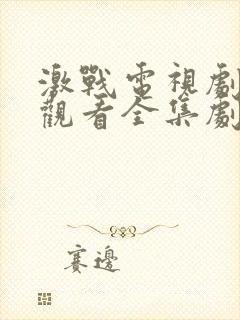 激戰電視劇
觀看全集劇
賽邊